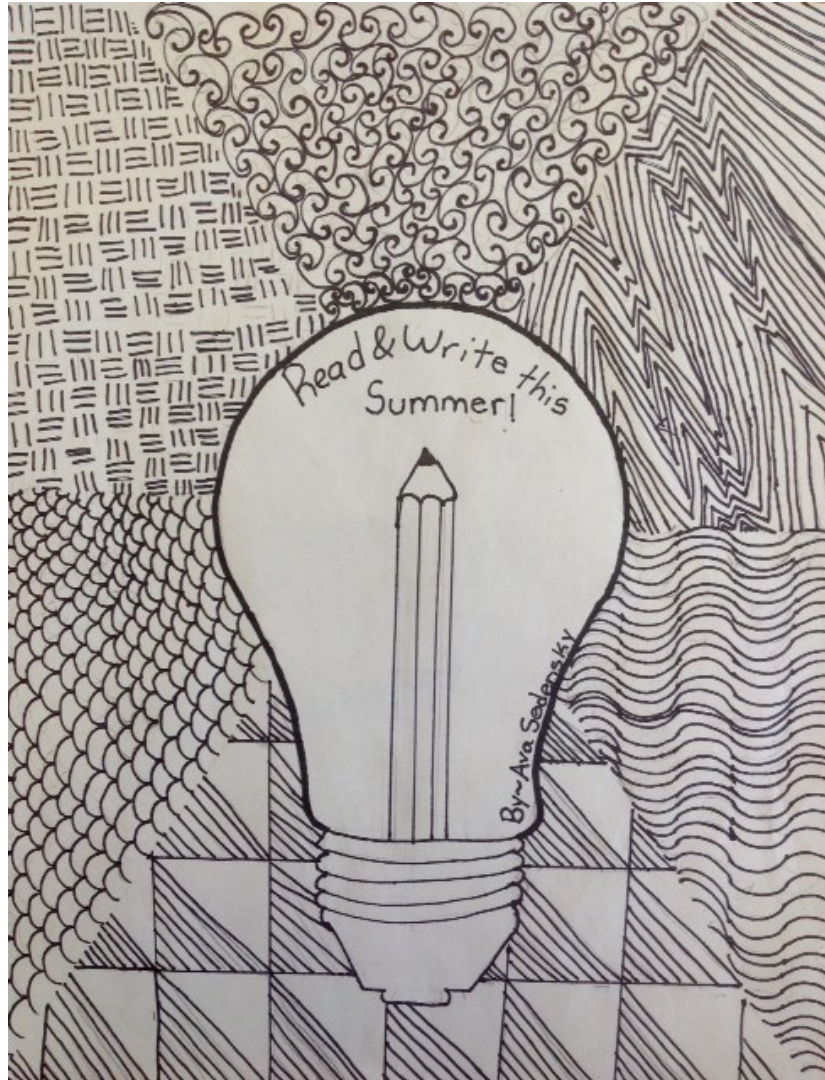 Read & Write this
Summer!
By~Ava Sedensky